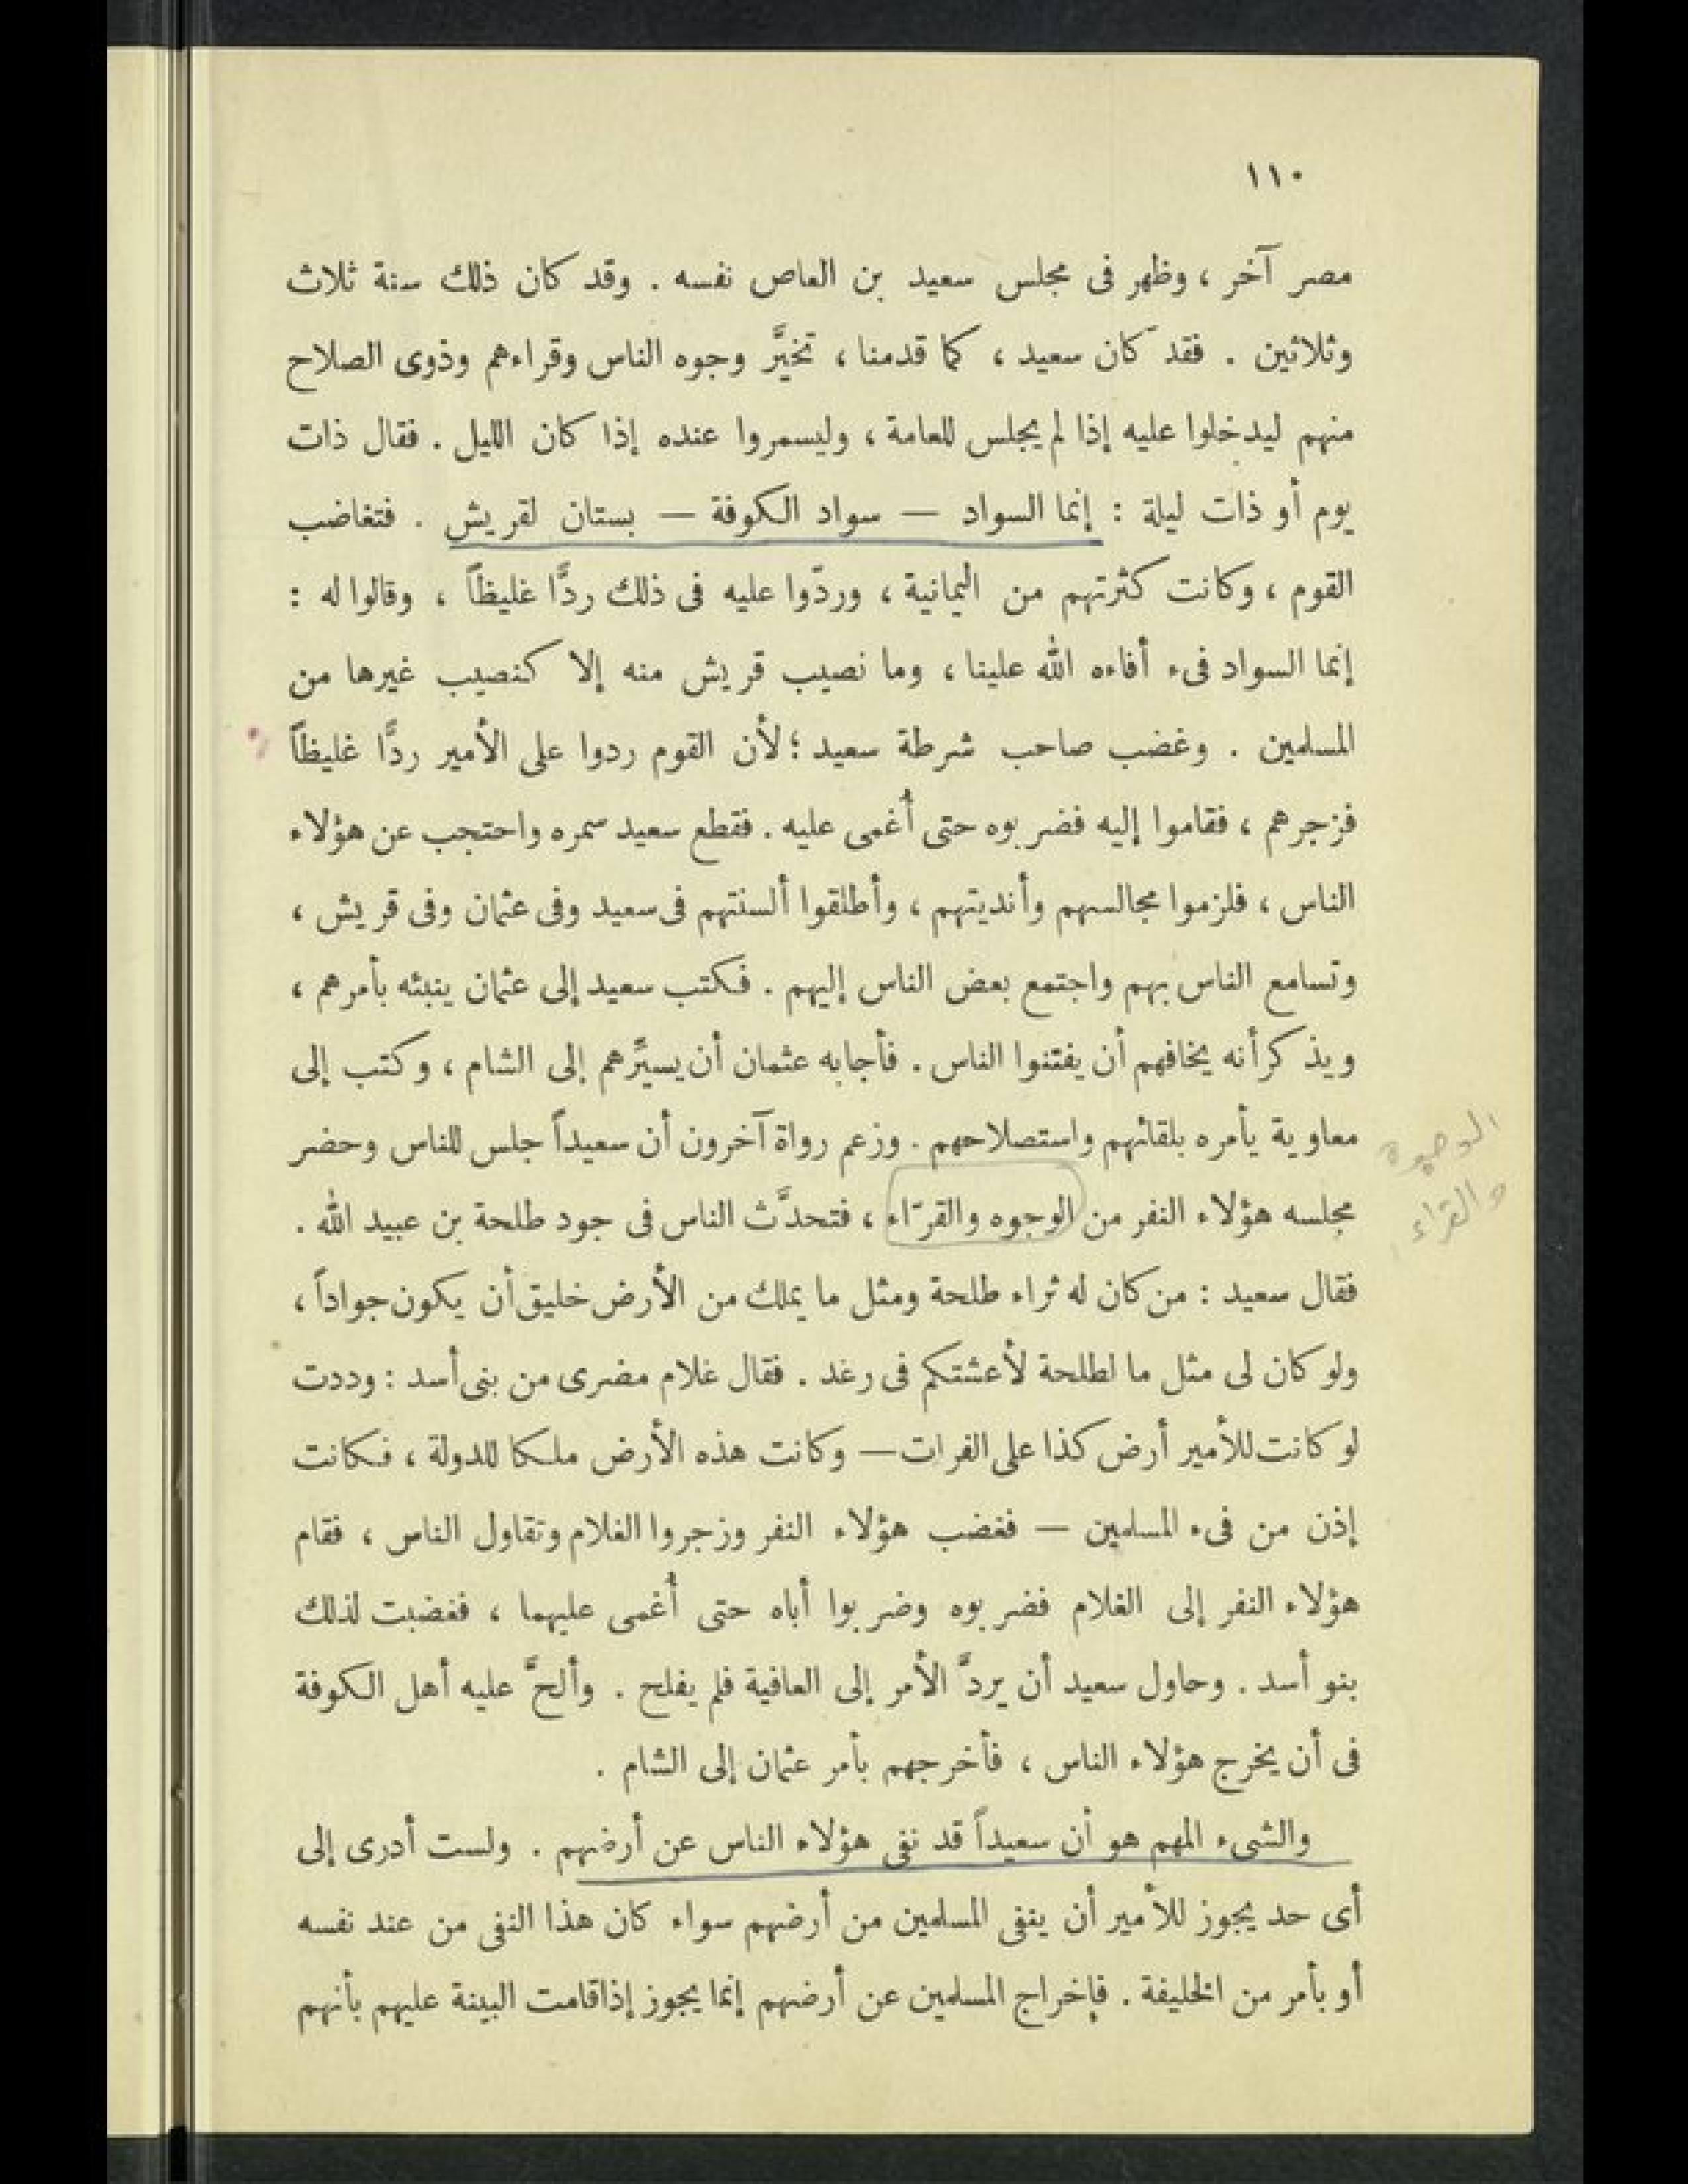 ١١٠
مصر آخر ، وظهر فى مجلس سعيد بن العاص نفسه . وقد كان ذلك سنة ثلاث
وثلاثين . فقد كان سعيد ، كما قدمنا ، تخيَّر وجوه الناس وقراءهم وذوى الصلاح
منهم ليدخلوا عليه إذا لم يجلس للعامة ، وليسمروا عنده إذا كان الليل . فقال ذات
يوم أو ذات ليلة : إنما السواد — سواد الكوفة — بستان لقريش . فتغاضب
القوم ، وكانت كثرتهم من اليمانية ، وردّوا عليه فى ذلك ردًّا غليظاً ، وقالوا له :
إنما السواد فىء أفاءه الله علينا ، وما نصيب قريش منه إلا كنصيب غيرها من
المسلمين . وغضب صاحب شرطة سعيد ؛ لأن القوم ردوا على الأمير ردًّا غليظاً
فزجرهم ، فقاموا إليه فضربوه حتى أُغمى عليه . فقطع سعيد سمره واحتجب عن هؤلاء
الناس ، فلزموا مجالسهم وأنديتهم ، وأطلقوا ألسنتهم فى سعيد وفى عثمان وفى قريش ،
وتسامع الناس بهم واجتمع بعض الناس إليهم . فكتب سعيد إلى عثمان ينبئه بأمرهم ،
ويذكر أنه يخافهم أن يفتنوا الناس . فأجابه عثمان أن يسيِّرهم إلى الشام ، وكتب إلى
معاوية يأمره بلقائهم واستصلاحهم . وزعم رواة آخرون أن سعيداً جلس للناس وحضر
مجلسه هؤلاء النفر من الوجوه والقرّاء ، فتحدَّث الناس فى جود طلحة بن عبيد الله .
والقراء
فقال سعيد : من كان له ثراء طلحة ومثل ما يملك من الأرض خليق أن يكون جواداً ،
ولو كان لى مثل ما لطلحة لأعشتكم فى رغد . فقال غلام مضرى من بنى أسد : وددت
لو كانت للأمير أرض كذا على الفرات — وكانت هذه الأرض ملكا للدولة ، فكانت
إذن من فىء المسلمين — فغضب هؤلاء النفر وزجروا الغلام وتقاول الناس ، فقام
هؤلاء النفر إلى الغلام فضربوه وضربوا أباه حتى أُغمى عليهما ، فغضبت لذلك
بنو أسد . وحاول سعيد أن يردَّ الأمر إلى العافية فلم يفلح . وألحَّ عليه أهل الكوفة
فى أن يخرج هؤلاء الناس ، فأخرجهم بأمر عثمان إلى الشام .
والشىء المهم هو أن سعيداً قد نفى هؤلاء الناس عن أرضهم . ولست أدرى إلى
أى حد يجوز للأمير أن ينفى المسلمين من أرضهم سواء كان هذا النفى من عند نفسه
أو بأمر من الخليفة . فإخراج المسلمين عن أرضهم إنما يجوز إذا قامت البينة عليهم بأنهم